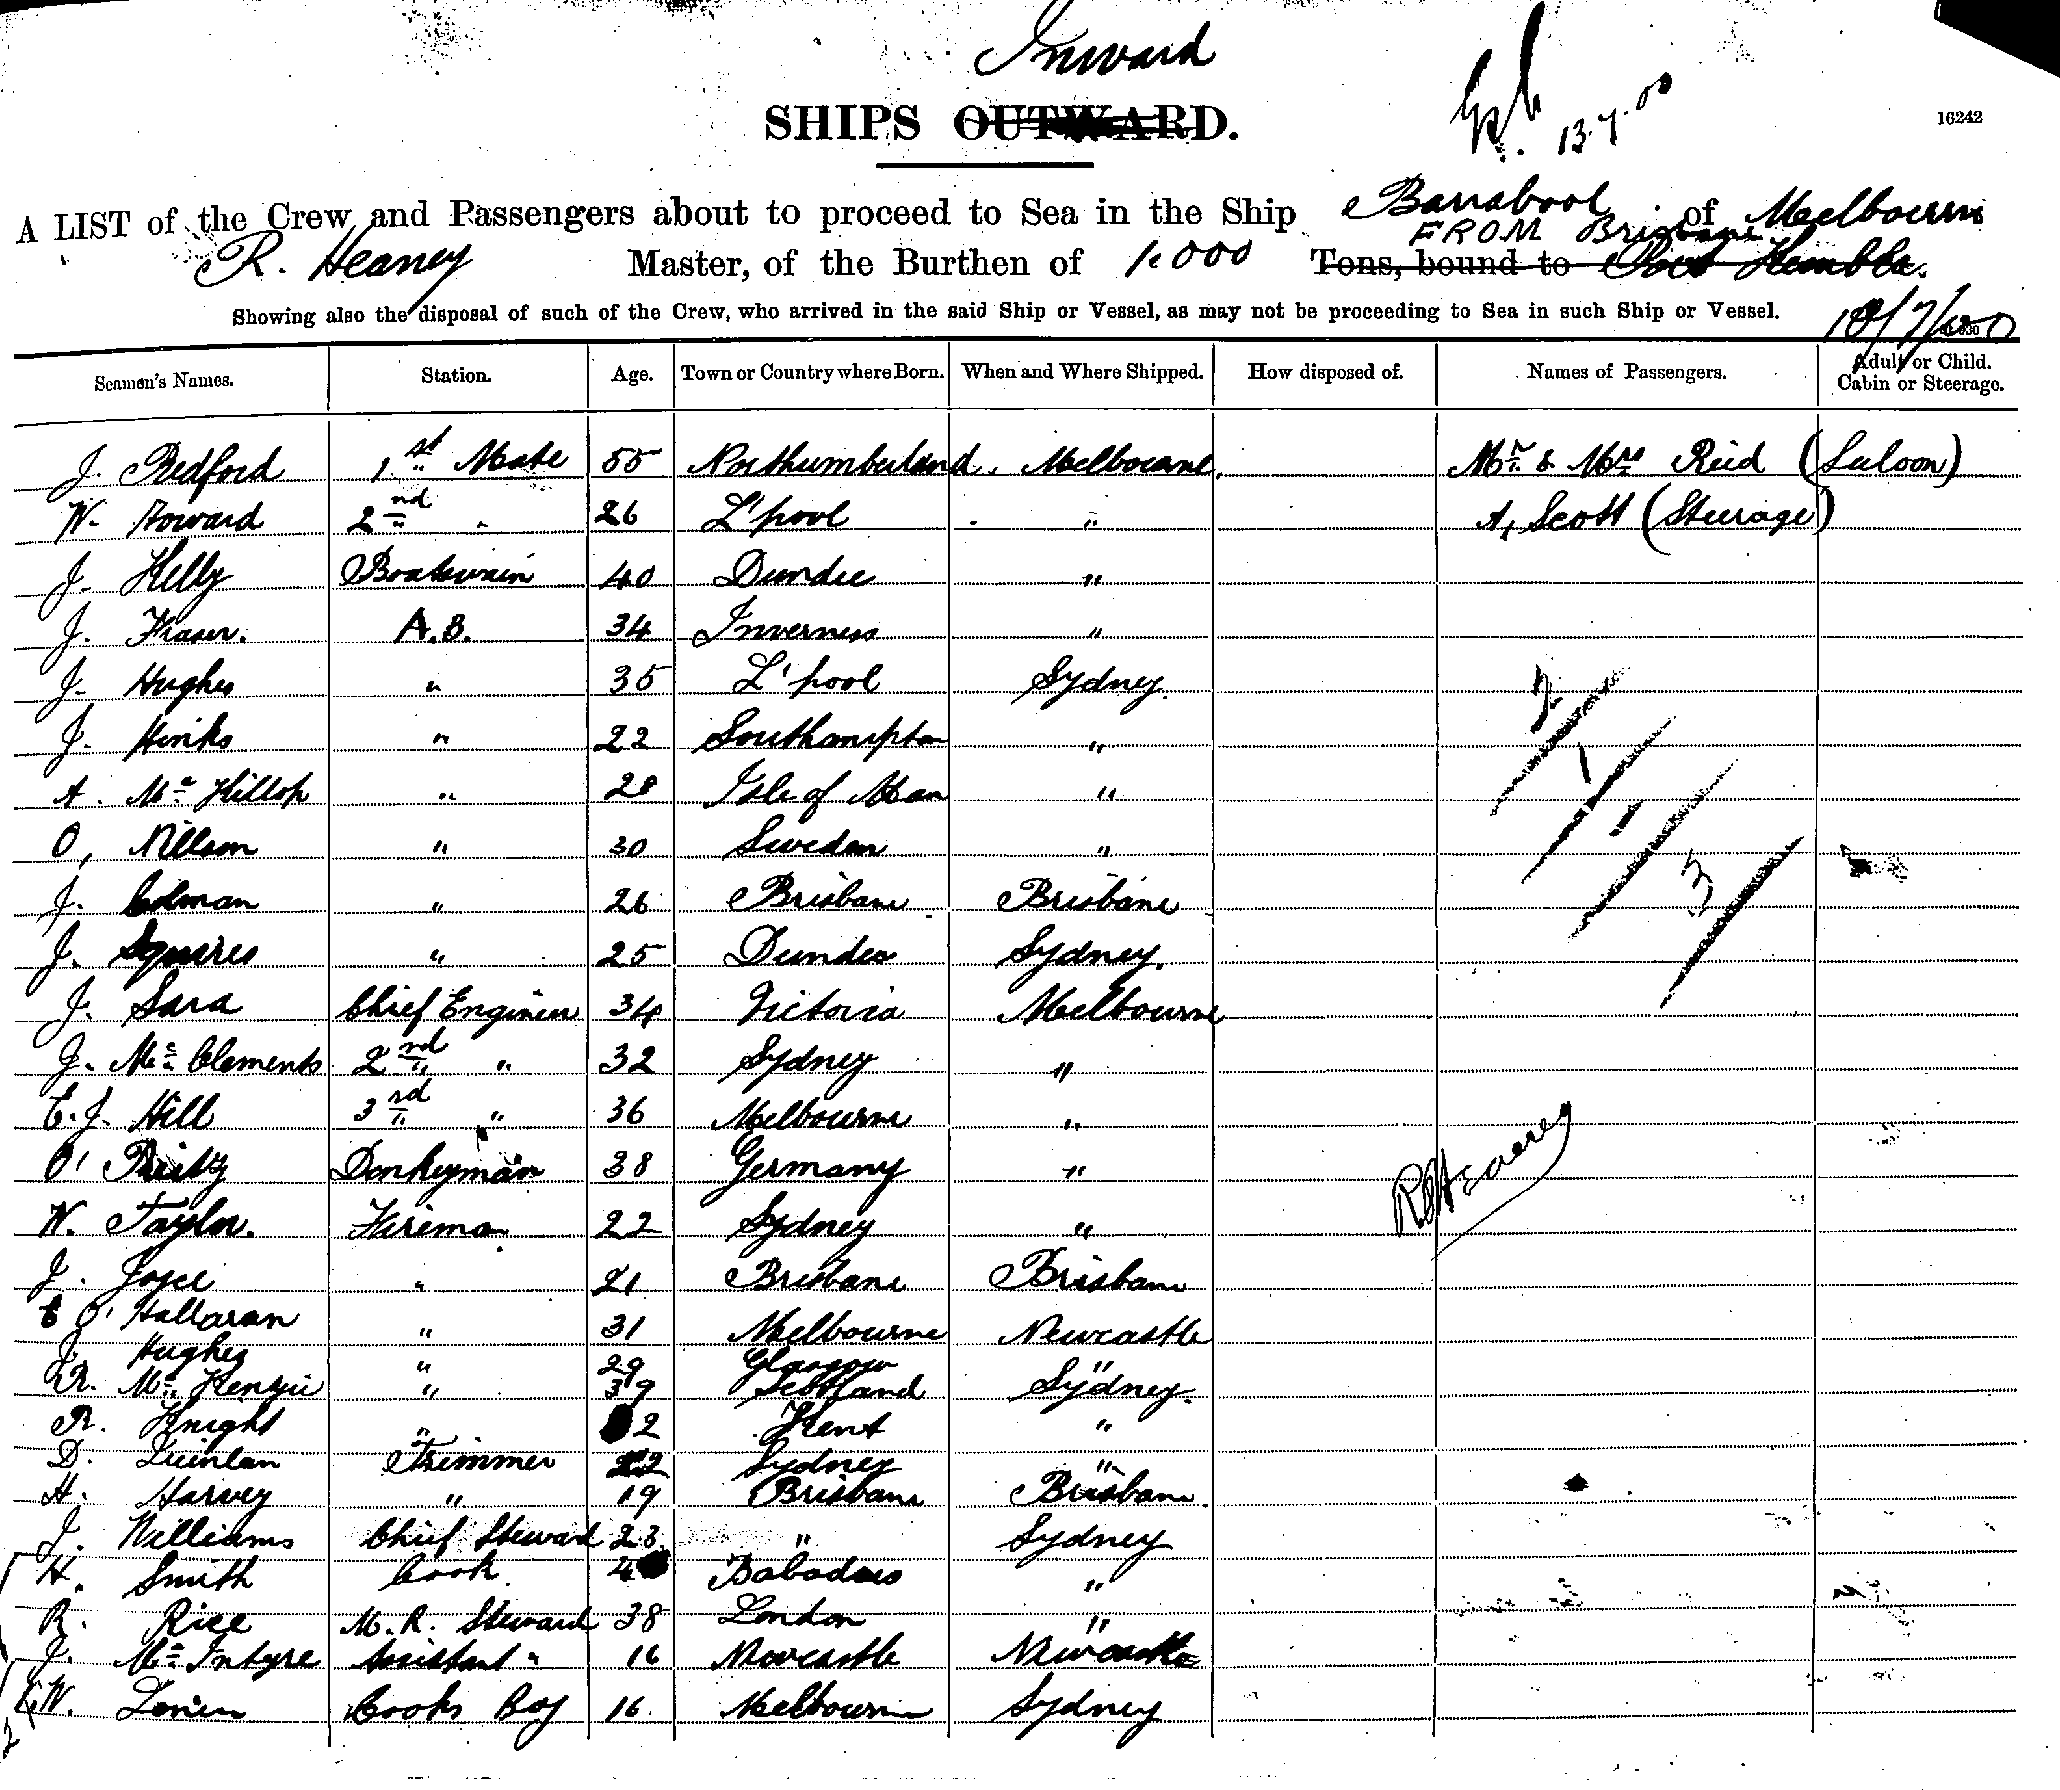 Inward
SHIPS OUTWARD.
13.7.00
16242
A LIST of the Crew and Passengers about to proceed to Sea in the Ship Barrabool of Melbourne
FROM Brisbane
R. Heaney Master, of the Burthen of 1.000 Tons, bound to Port Kembla.
Showing also the disposal of such of the Crew, who arrived in the said Ship or Vessel, as may not be proceeding to Sea in such Ship or Vessel.
Seamen's Names. Station. Age. Town or Country where Born. When and Where Shipped. How disposed of. Names of Passengers. Adult or Child. Cabin or Steerage.
J. Bedford 1st Mate 55 Northumberland. Melbourne. Mr & Mrs Reid (Saloon)
W. Howard 2nd " 26 L'pool " A, Scott (Steerage)
J. Kelly Boatswain 40 Dundee "
J. Fraser. A.B. 34 Inverness "
J. Hughes " 35 L'pool Sydney.
J. Hinks " 22 Southampton "
A. Mc Killop " 28 Isle of Man "
O, Nillson " 30 Sweden "
J. Colman " 26 Brisbane Brisbane
J. Squires " 25 Dundee Sydney.
J. Sara Chief Engineer 34 Victoria Melbourne
J. Mc Clements 2nd " 32 Sydney "
C. J. Hill 3rd " 36 Melbourne "
O' Donkeyman 38 Germany "
W. Taylor. Fireman 22 Sydney "
J. Joyce " 21 Brisbane Brisbane
O' Hallaran " 31 Melbourne Newcastle
J. Hughes " 29 Glasgow "
R. Mc Kenzie " 39 Scotland Sydney.
R. Knight " 2 Kent "
D. Quinlan Trimmer 22 Sydney "
H. Harvey " 19 Brisbane Brisbane.
J. Williams Chief Steward 23 " Sydney
H. Smith Cook 4 Babadoes "
R. Rice M. R. Steward 38 London "
J. Mc Intyre Assistant " 16 Newcastle Newcastle
W. Cooks Boy 16. Melbourne Sydney
2
1
1
3
R Heaney